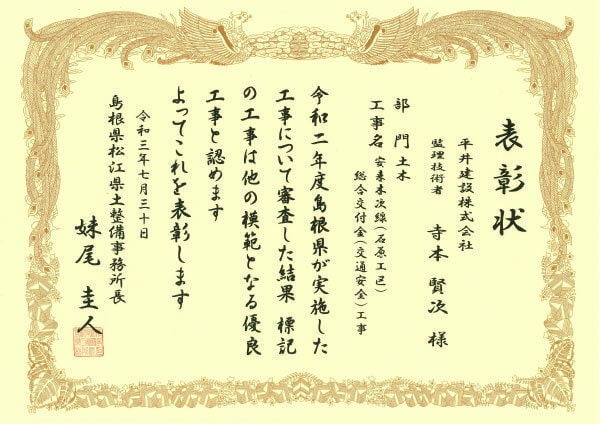 表彰状
平井建設株式会社
監理技術者　寺本　賢次　様
部　門　土木
工事名　安来木次線(石原工区)
総合交付金(交通安全)工事
令和二年度島根県が実施した
工事について審査した結果　標記
の工事は他の模範となる優良
工事と認めます
よってこれを表彰します
令和三年七月三十日
島根県松江県土整備事務所長
妹尾　圭人